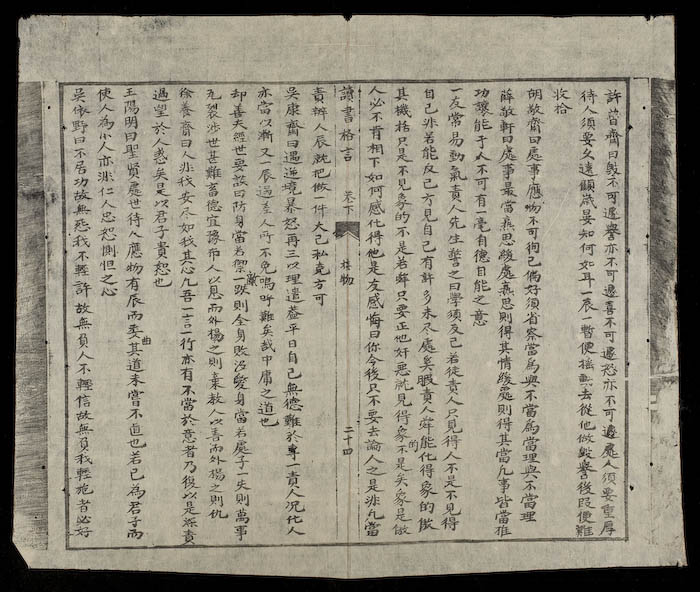 許魯齋曰毀不可遽譽亦不可遽喜不可遽怒亦不可遽處人須要重厚
待人須要久遠顧歲晏如何耳一辰一暫便搖動去從他做毀譽後段便難
收拾
胡敬齋曰處事應物不可徇己偏好須省察當為與不當為當理與不當理
薛敬軒曰處事最當熟思緩處熟思則得其情緩處則得其當凡事皆當推
功讓能于人不可有一毫自德自能之意
一友常易動氣責人先生警之曰學須反己若徒責人只見得人不是不見得
自己非若能反己方見自己有許多未尽處奚暇責人舜能化得象的傲
其機括只是不見象的不是若舜只要正他奸惡就見得象不是矣象是傲
人必不肯相下如何感化得他是友感悔曰你今後只不要去論人之是非凡當
責辨人辰就把做一件大己私克方可
讀書格言 卷下 接物 二十四
吳康齋曰遇逆境暴怒再三以理遣蓋平日自己無德難於專一責人況化人
亦當以漸又一辰過差人所不免嗚呼難矣哉中庸之道也
却善夫經世要談曰防身當若禦敵一跌則全身敗沒愛身當若處子一失則萬事
瓦裂涉世甚難畜德宜豫布人以恩而外揚之則棄教人以善而外揚之則仇
徐養齋曰人非我安尽如我其心凡吾一言一行亦有不當於意者乃後以是深責
過望於人惑矣是以君子貴恕也
王陽明曰聖賢處世待人應物有辰而委曲其道未嘗不直也若己為君子而
使人為小人亦非仁人忠恕惻怛之心
吳依野曰不居功故無怨我不輕許故無負人不輕信故無負我輕施者必好